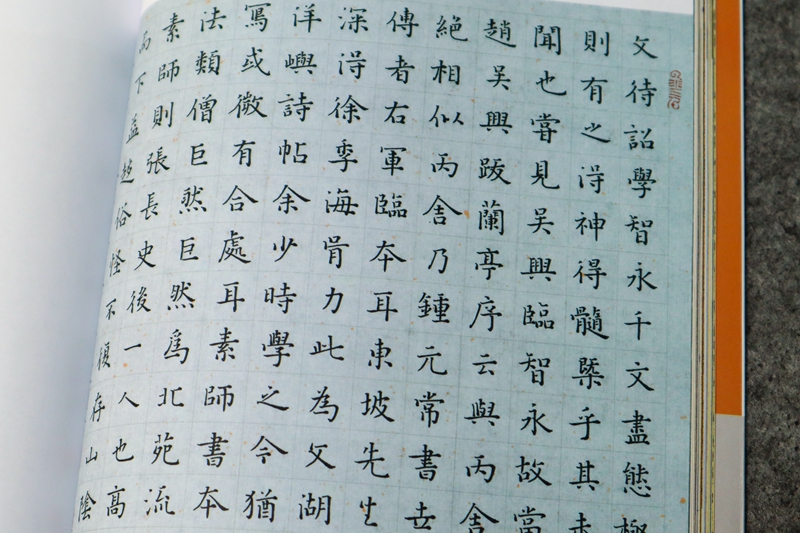 文待詔學智永千文盡態極
則有之淂神得髓槩乎其未
聞也甞見吴興臨智永故當
趙吴興跋蘭亭序云與丙舍
絶相似丙舍乃鍾元常書世
傳者右軍臨本耳東坡先生
深淂徐季海骨力此為文湖
洋嶼詩帖余少時學之今猶
寫或微有合處耳素師書本
法類僧巨然巨然為北苑流
素師則張長史後一人也髙
而下益趨俗怪不復存山陰